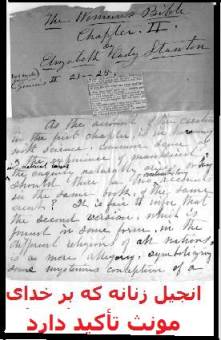 The Woman's Bible
Chapter II.
by
Elizabeth Cady Stanton
Genesis II 21–25.
As the account of the creation
in the first chapter is in
with science, common sense,
the experience of
the enquiry naturally
should
in the same book, of the same
event? It is fair to infer that
the second version, which is
found in some form, in the
different religions of all nations,
is a mere allegory, symbolizing
some mysterious conception of a
انجیل زنانه که بر خدای
مونث تأکید دارد